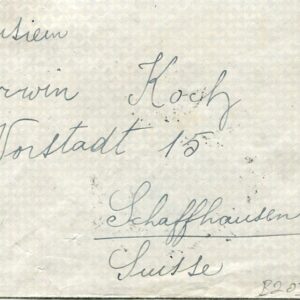 sieur
rwin Koch
Vorstadt 15
Schaffhausen
Suisse